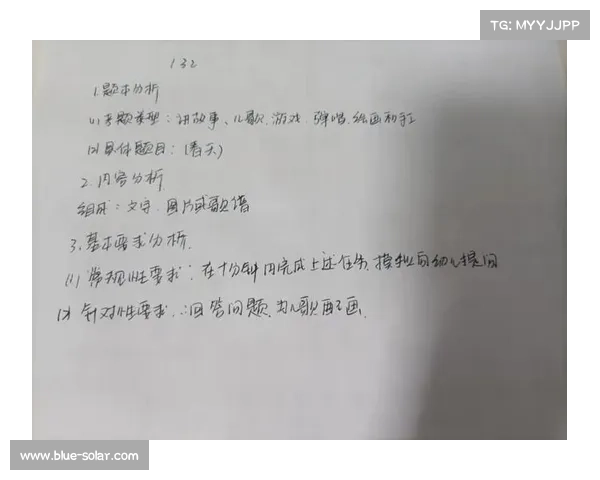 TG: MYYJJPP
132
1.题本分析
(1)专题类型:讲故事、儿歌、游戏、弹唱、绘画和手工
(2)具体题目:《春天》
2.内容分析
组成:文字、图片或歌谱
3.基本要求分析.
(1)常规性要求:在十分钟内完成上述任务,模拟向幼儿提问
(2)针对性要求:回答问题、为儿歌配画.
www.blue-solar.com